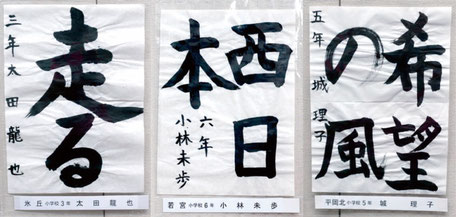 走る
三年 太田龍也
氷丘小学校3年 太田龍也
西日
本
六年
小林未歩
若宮小学校6年 小林未歩
希望
の風
五年 城理子
平岡北小学校5年 城理子